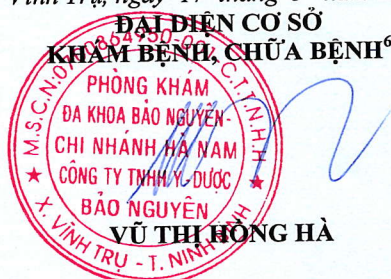 Vĩnh Trụ, ngày
ĐẠI DIỆN CƠ SỞ
KHÁM BỆNH, CHỮA BỆNH⁶
C.T.T.N.H.H
PHÒNG KHÁM
ĐA KHOA BẢO NGUYÊN-
CHI NHÁNH HÀ NAM
CÔNG TY TNHH Y-DƯỢC
BẢO NGUYÊN
X. VĨNH TRỤ - T. NINH BÌNH
VŨ THỊ HỒNG HÀ